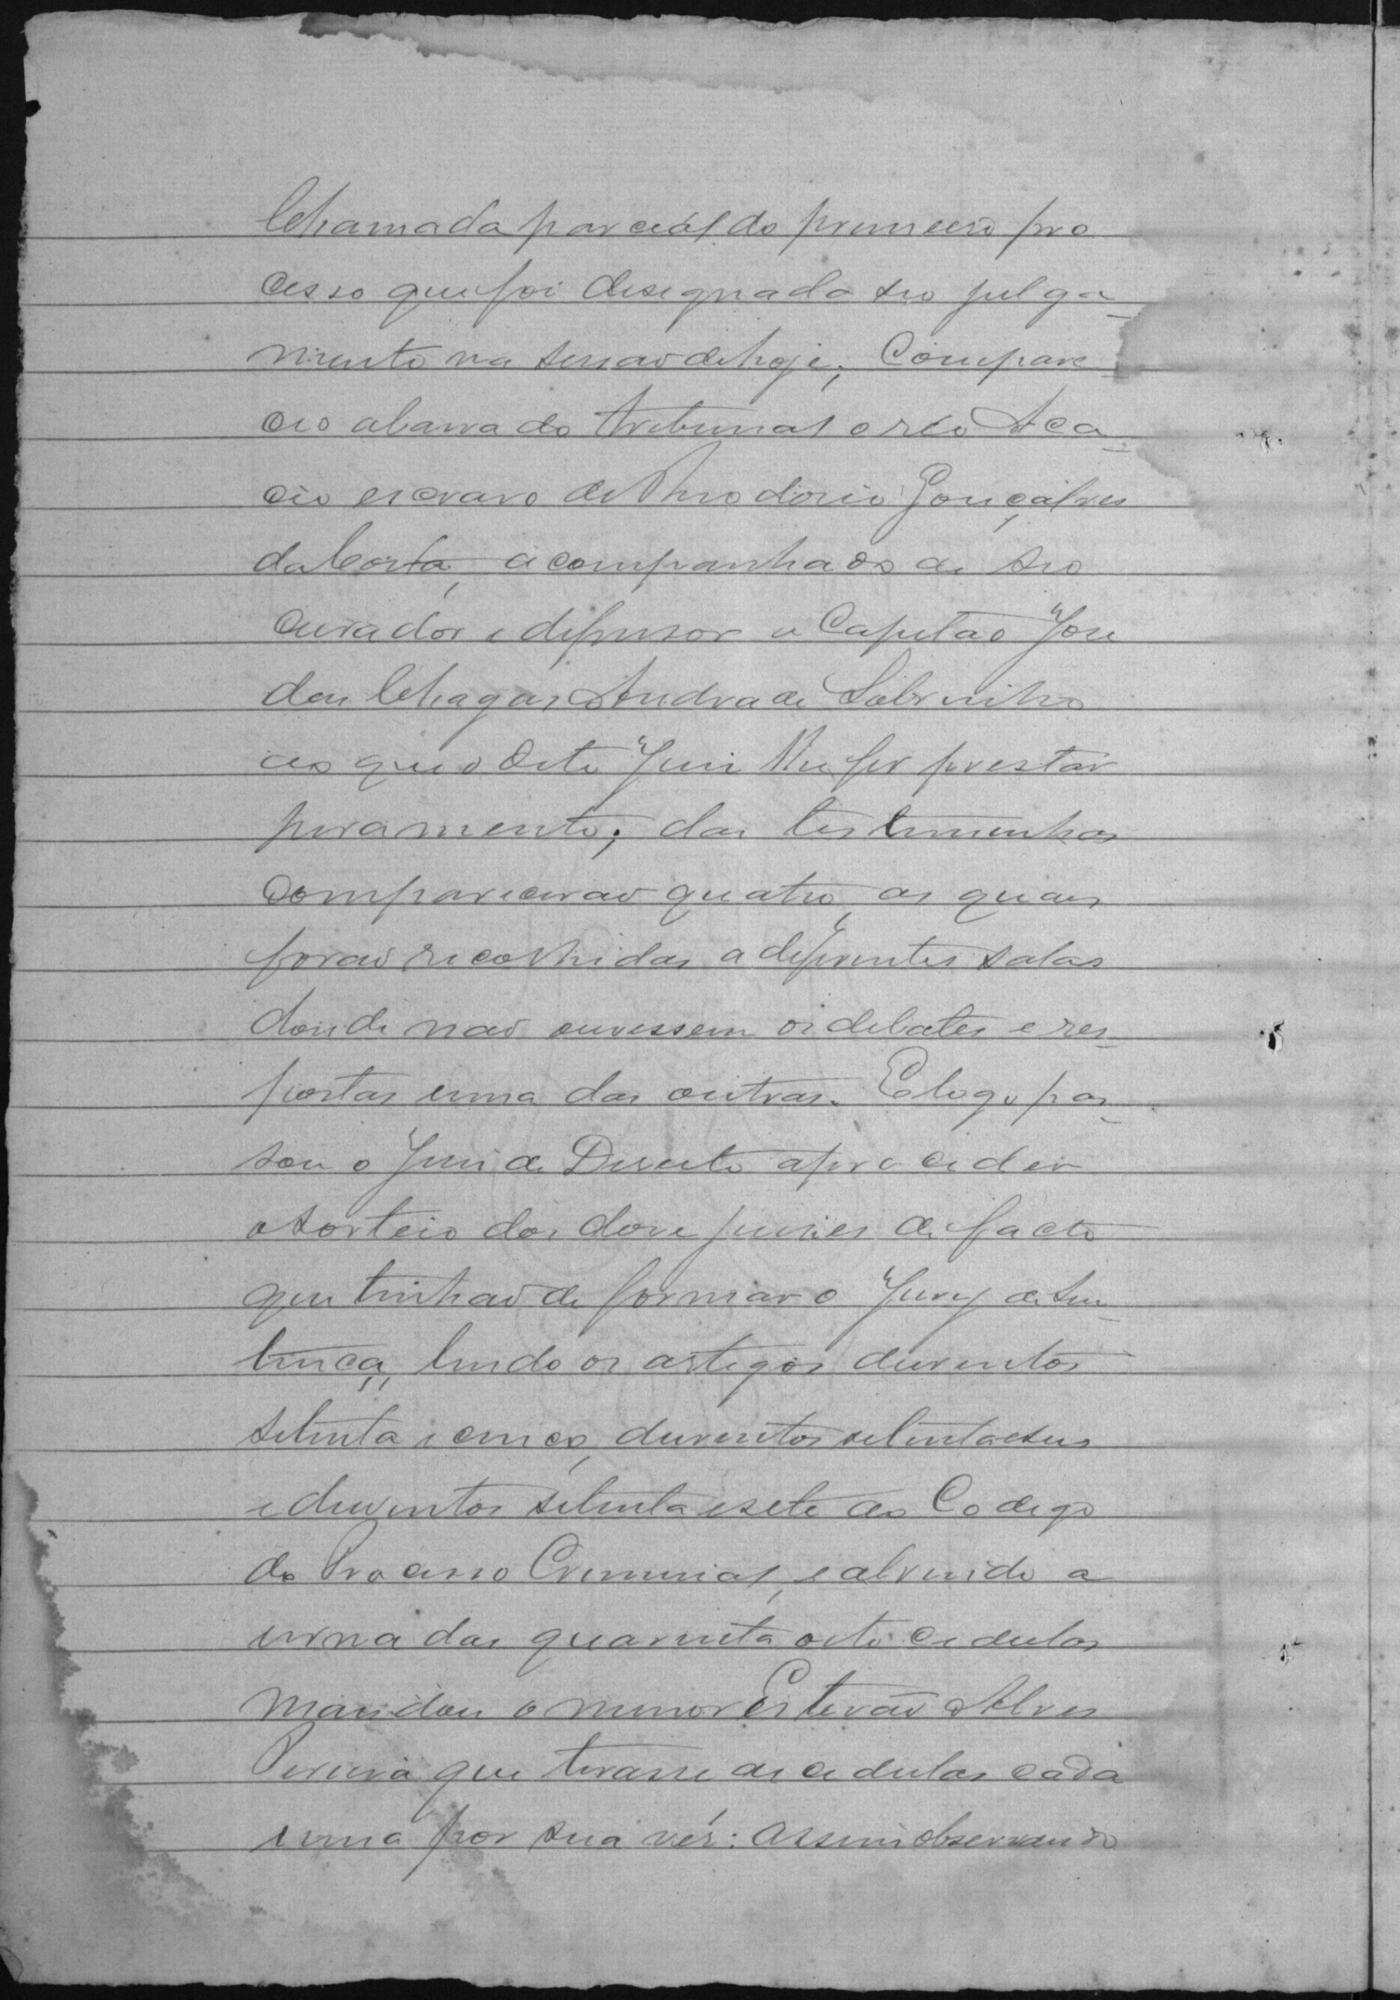 Chamada parcial do primeiro pro
cesso que foi designado seo julga-
mento na sessao de hoje; Compare-
ceo a barra do tribunal o reo Aca-
cio escravo de Theodosio Gonçalves
da Costa, acompanhado de seo
curador e defensor o Capitão José
das Chagas Andrade Sobrinho
ao que o dito Juiz lhe fez prestar
juramento; das testimunhas
comparecerao quatro, as quaes
forao recolhidas a deferentes salas
donde nao ouvessem os debates e res-
postas uma das outras. E logo pas-
sou o Juiz de Direito a proceder
o sorteio dos doze juizes de facto
que tinhao de formar o Jury de Sen-
tença, lendo os artigos duzentos
setenta e cinco, duzentos setenta e seis
e duzentos setenta e sete do Codigo
do Processo Criminal, e abrindo a
urna das quarenta oito cedulas
mandou o menor Estevão Alves
Pereira que tirasse as cedulas cada
uma por sua vés: assim observando